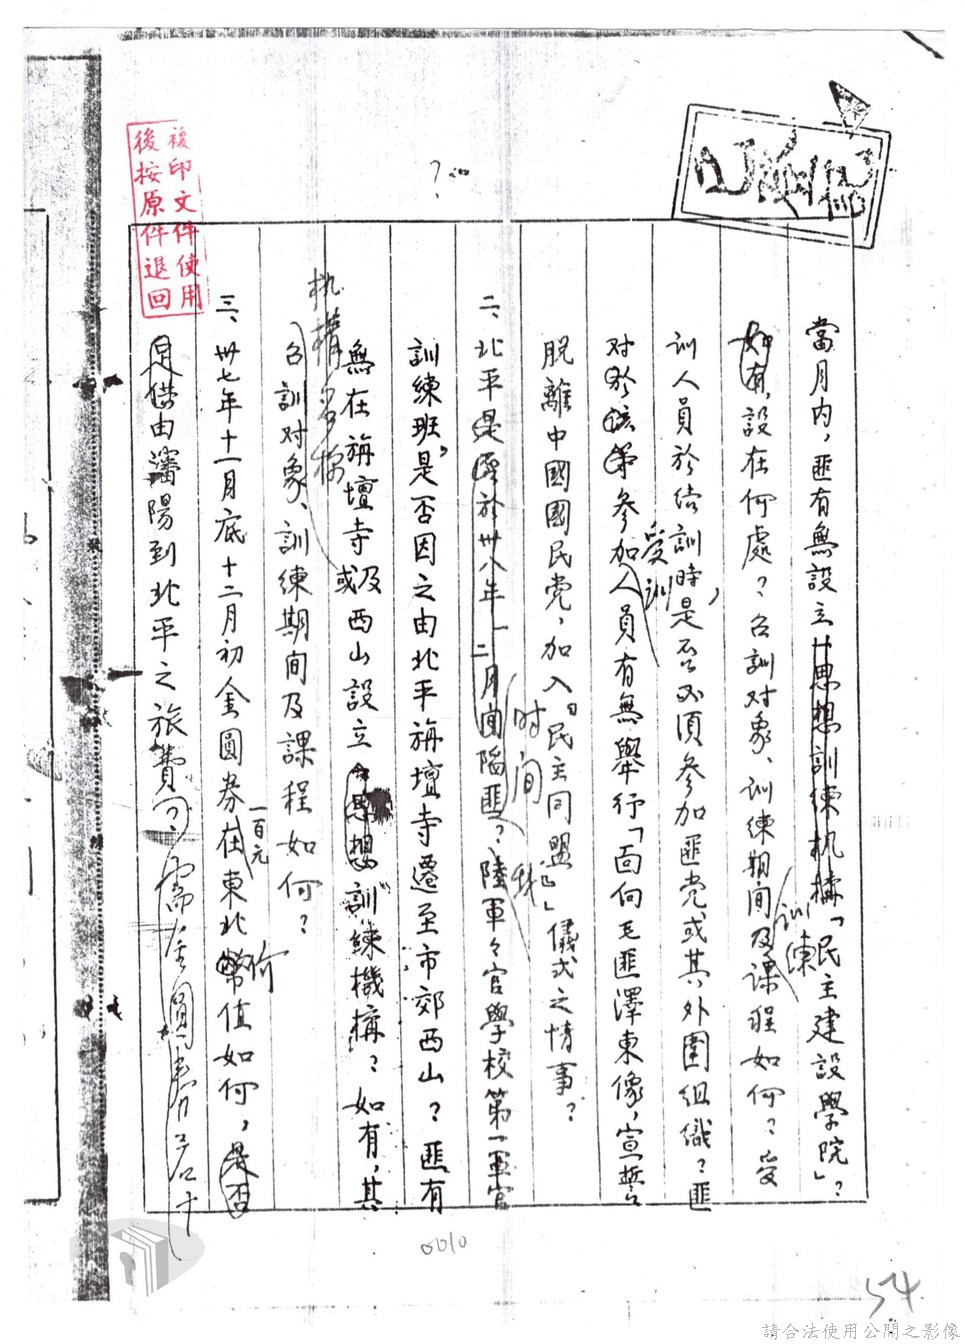 當月內，匪有無設立思想訓練机構「民主建設學院」？
如有，設在何處？召訓对象、訓練期間及課程如何？受
訓練
訓人員於結訓時，是否必須參加匪党或其外圍組織？匪
对於該等參加人員有無舉行「面向毛匪澤東像，宣誓
受訓
脫離中國國民党，加入『民主同盟』」儀式之情事？
二、北平是否於卅八年一二月間陷匪？陸軍軍官學校第一軍官
时间
訓練班，是否因之由北平旃壇寺遷至市郊西山？匪有
無在旃壇寺及或西山設立思想訓練機構？如有，其
机構名稱
召訓对象、訓練期間及課程如何？
三、卅七年十一月底十二月初金圓券在東北幣值如何，是否
一百元
价
足供由瀋陽到北平之旅費
複印文件使用
後按原件退回
0010
54
請合法使用公開之影像